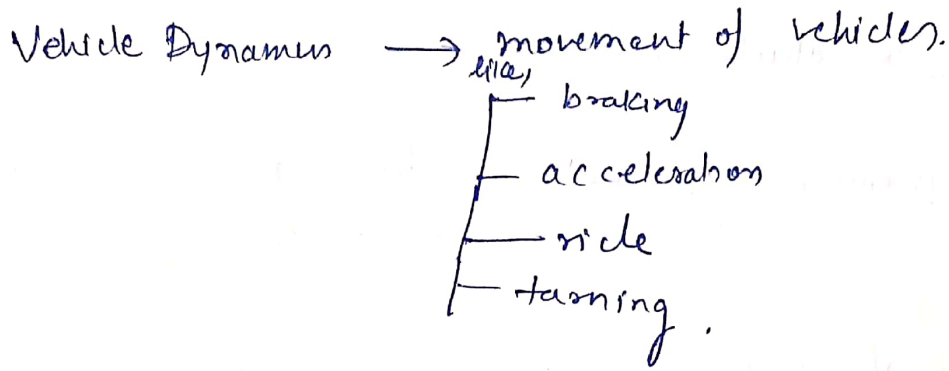 Vehicle Dynamics → movement of vehicles.
like,
braking
acceleration
ride
turning.